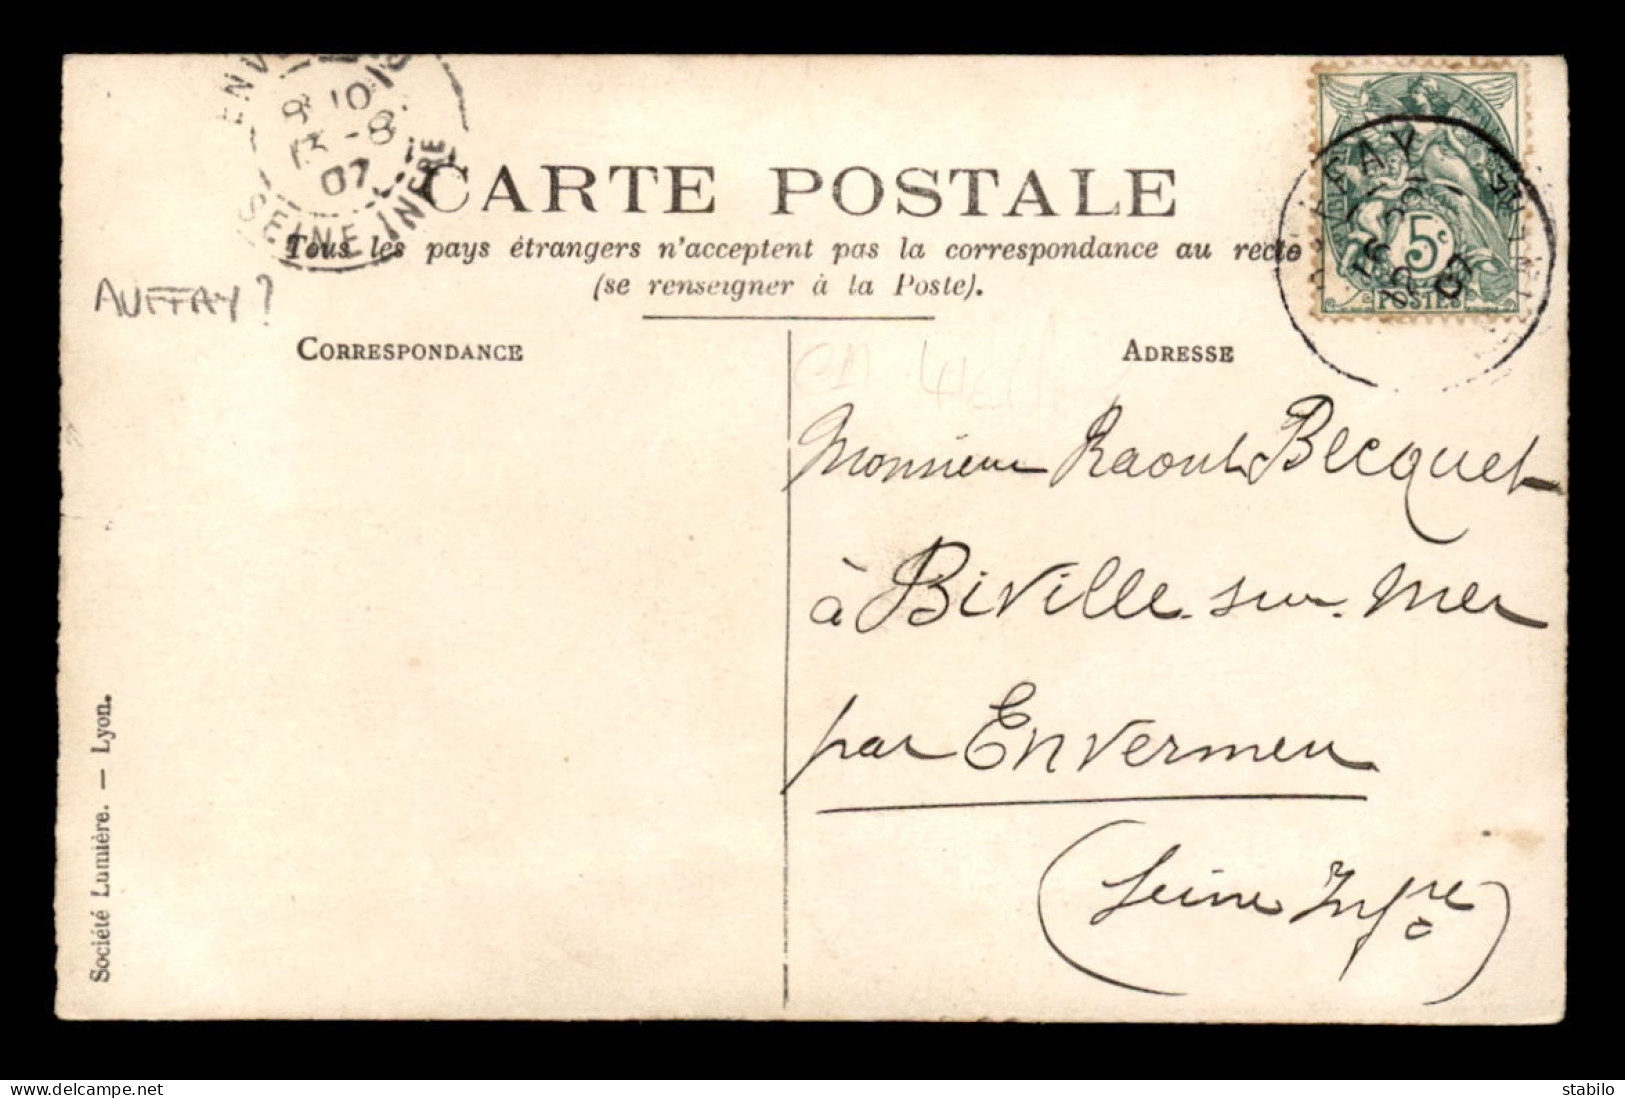 8 10
13 -8
07
SEINE INFRE
CARTE POSTALE
Tous les pays étrangers n'acceptent pas la correspondance au recto
(se renseigner à la Poste).
AUFFAY ?
CORRESPONDANCE
ADRESSE
5c
POSTES
Monsieur Raoul Becquet
à Biville-sur-Mer
par Envermeu
(Seine Infre)
Société Lumière. — Lyon.
delcampe.net
stabilo